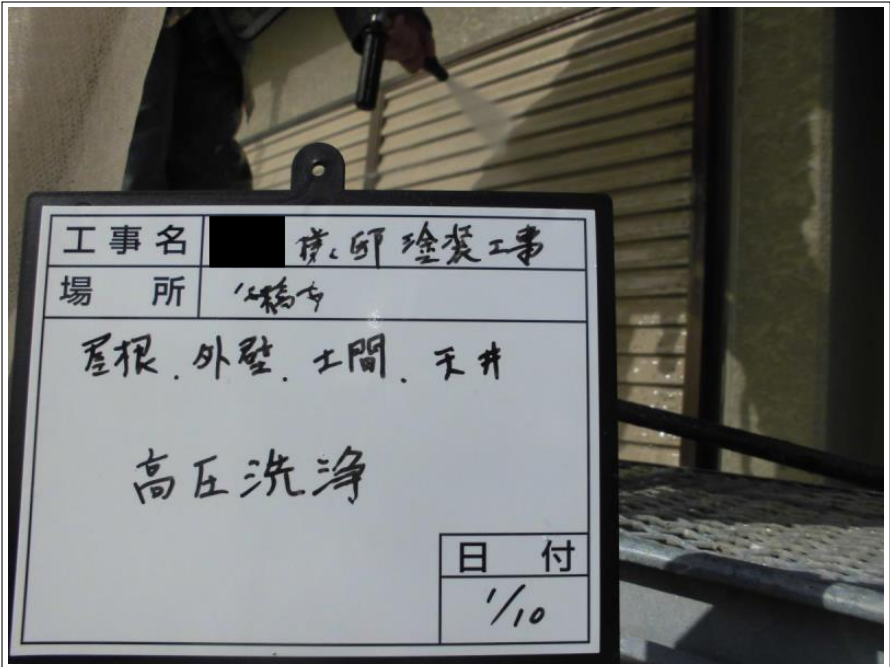 工事名 様邸 塗装工事
場所
屋根.外壁.土間.天井
高圧洗浄
日付
1/10